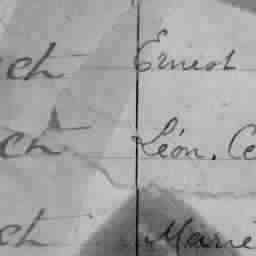 ch Ernest
ch Léon. Ce
ch Marie